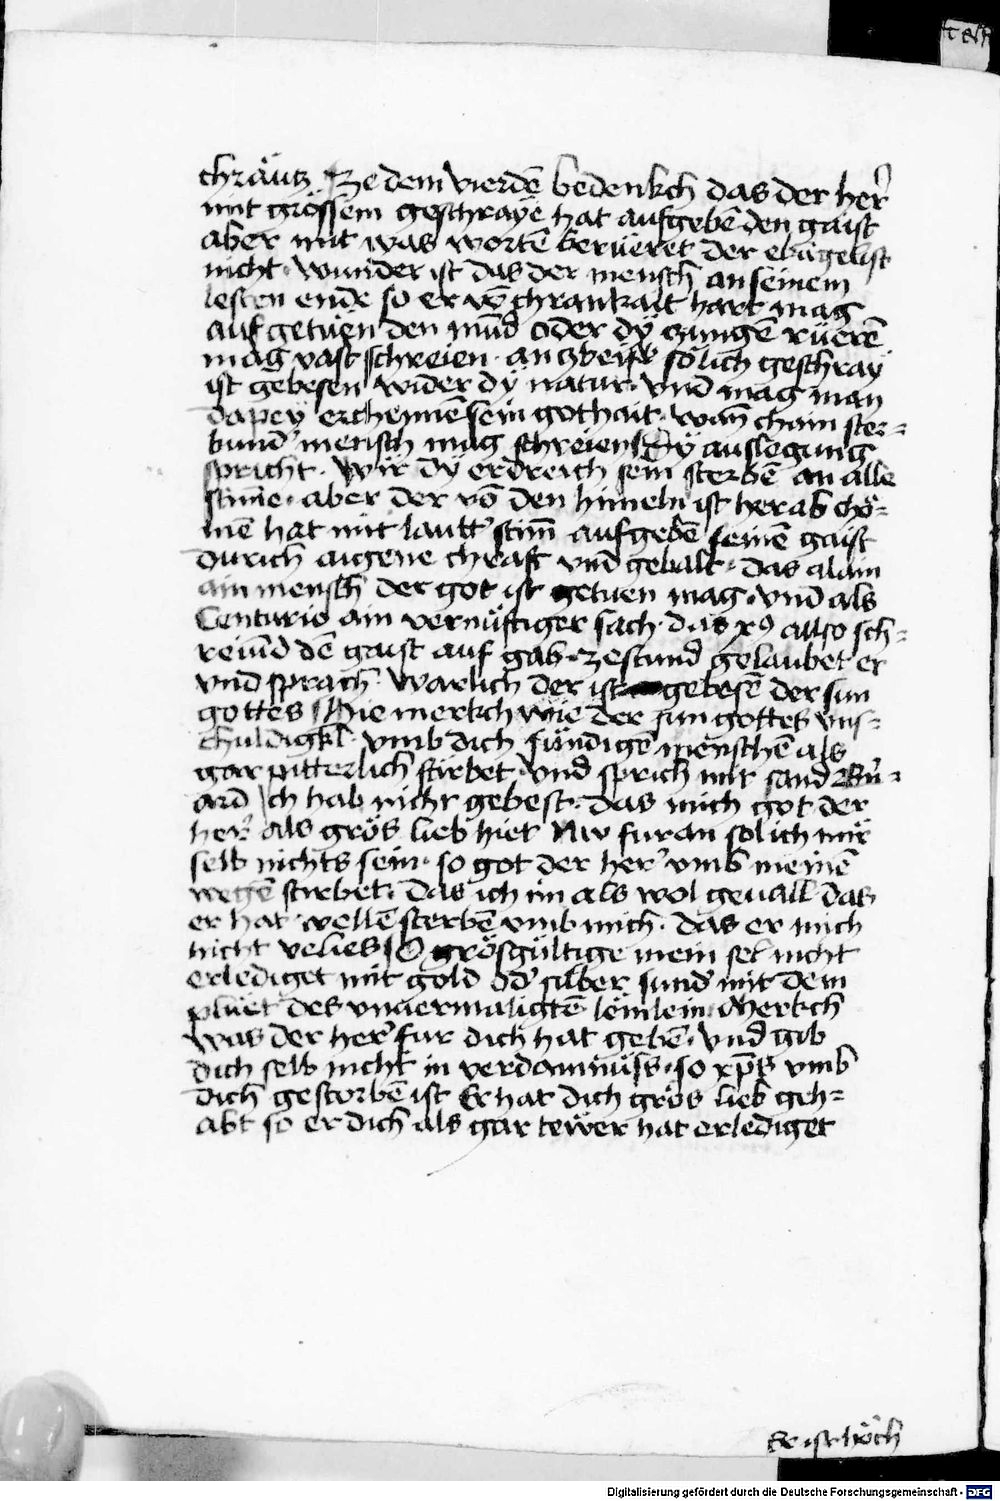 chräutz Ze dem vierdē bedenkch das der her᷑
mit grössem geschraye hat aufgebē den gaist
aber mit was wortē berüeret der ebāgelist
nicht · wunder ist das der mensch an seinem
lesten ende so er vō chrankait hart mag
auf getuen den mūd oder dÿ zungē rüerē
mag vast schreien · an zbeifl sölich geschray
ist gebesen wider dÿ natur · vnd mag man
dapey erchennē sein gothait · wān chain ster=
bund᷑ mensch mag schreien Dÿ auslegung
spricht · Wir dÿ erdreich sein sterbē an alle
stīme · aber der vō den himeln ist herab chö=
mē hat mit lautt᷑ stim̄ aufgebē seinē gaist
durich aigene chraft vnd gebalt · das alain
ain mensch der got ist getuen mag · vnd als
Centurio ain vernüftiger sach · das xꝰ allso sch=
reiund dē gaist auf gab · zestund gelaubet er
vnd sprach · Warlich der ist gebesē der sun
gottes Hie merkch wie der sun gottes vns=
chuldigkl · vmb dich sündigē menschē als
gar pitterlich stirbet · vnd sprich mit sand Bn̄=
ard Ich hab nicht gebest · das mich got der
her᷑ als grös lieb hiet Nw furan sol ich mir
selb nichts sein · so got der her᷑ vmb meinē
wegē stirbet · das ich im als wol geuall das
er hat wellē sterbē vmb mich · das er mich
nicht verlies O grösgültige mein sel nicht
erlediget mit gold od᷑ silber sund᷑ mit dem
pluet des vnuermaligtē lemlein Merkch
was der her᷑ fur dich hat gebē · vnd gib
dich selb nicht in verdamnüss · so xp̄s vmb
dich gestorbē ist Er hat dich grös lieb geh=
abt so er dich als gar tewer hat erlediget
Er ist höch
Digitalisierung gefördert durch die Deutsche Forschungsgemeinschaft - DFG